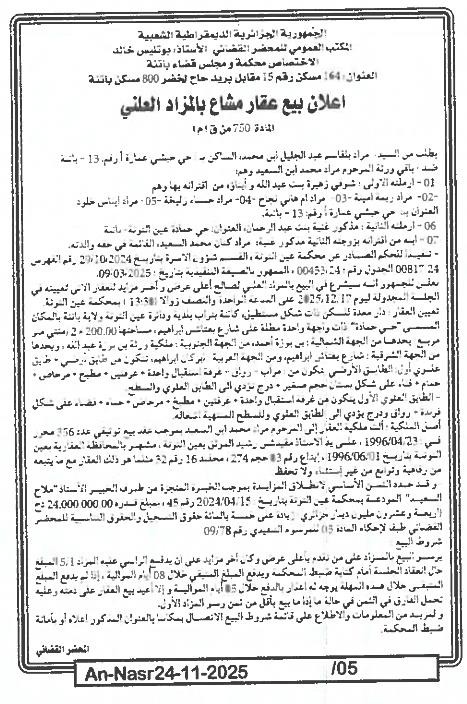 الجمهورية الجزائرية الديمقراطية الشعبية
المكتب العمومي للمحضر القضائي الأستاذ: بوتليس خالد
الاختصاص محكمة و مجلس قضاء باتنة
العنوان: 164 مسكن رقم 15 مقابل بريد حاج لخضر 800 مسكن باتنة
اعلان بيع عقار مشاع بالمزاد العلني
المادة 750 من ق إ م إ
بطلب من السيد: مراد بلقاسم عبد الجليل ابن محمد، الساكن بـ: حي حبشي عمارة أ رقم: 13 - باتنة
ضد: باقي ورثة المرحوم مراد محمد ابن السعيد وهم:
01 - أرملته الأولى: شوفي زهيرة بنت عبد الله و أبناؤه من اقترانه بها وهم
02- مراد ريمة أمينة 03- مراد أم هاني نجاح 04- مراد حسناء زليخة 05- مراد إيناس خلود
العنوان بـ: حي حبشي عمارة أ رقم: 13 - باتنة.
06 - أرملته الثانية: مذكور غنية بنت عبد الرحمان، العنوان: حي حمادة عين التوتة - باتنة
07 - ابنه من اقترانه بزوجته الثانية مذكور غنية: مراد كنان محمد السعيد، القائمة في حقه والدته.
- تنفيذا للحكم الصادر عن محكمة عين التوتة، القسم شؤون الأسرة بتاريخ 29/10/2024 رقم الفهرس
00817/24 الجدول رقم: 00453/24، الممهور بالصيغة التنفيذية بتاريخ: 09/03/2025.
نعلن للجمهور أنه سيشرع في البيع بالمزاد العلني لصالح أعلى عرض و آخر مزايد للعقار الآتي تعيينه في
الجلسة المجدولة ليوم 2025/12/17 على الساعة الواحدة والنصف زوالا (13:30) بمحكمة عين التوتة
تعيين العقار: دار معدة للسكن ذات شكل مستطيل، كائنة بتراب بلدية ودائرة عين التوتة ولاية باتنة بالمكان
المسمى "حي حمادة" ذات واجهة واحدة مطلة على شارع بعتاش ابراهيم، مساحتها 200.00 م2 مئتي متر
مربع يحدها من الجهة الشمالية: بن بوزة أحمد، من الجهة الجنوبية: ملكية ورثة بن بريد عبد الله، ويحدها
من الجهة الشرقية: شارع بعتاش ابراهيم، ومن الجهة الغربية: بركان ابراهيم، تتكون من طابق أرضي + طابق
علوي أول: الطابق الأرضي يتكون من: مرآب - رواق - غرفة استقبال واحدة + غرفتين + مطبخ + مرحاض +
حمام + فناء على شكل بستان حجم صغير + درج تؤدي الى الطابق العلوي والسطح.
- الطابق العلوي الأول يتكون من غرفة استقبال واحدة + غرفتين + مطبخ + مرحاض + حمام + فضاء على شكل
فرندة + رواق ودرج يؤدي الى الطابق العلوي وللسطح المنتهية أشغاله.
أصل الملكية: آلت ملكية العقار إلى المرحوم مراد محمد ابن السعيد بموجب عقد بيع توثيقي عدد 356 محرر
في 1996/04/23، على يد الأستاذ مقيدشي رشيد الموثق بعين التوتة، مشهر بالمحافظة العقارية بعين
التوتة بتاريخ 1996/06/01، إيداع 03 حجم 274، مجلد 16 رقم 32 مثلما هو ذلك العقار مع ما يتبعه
من رفاهية وتوابع من غير استثناء ولا تحفظ
و قد حدد الثمن الأساسي لانطلاق المزايدة بموجب الخبرة المنجزة من طرف الخبير الأستاذ "ملاح
السعيد" المودعة بمحكمة عين التوتة بتاريخ 2024/04/15 رقم 45، بمبلغ 24.000.000.00 دج
أربعة وعشرون مليون دينار جزائري زيادة على خمسة بالمائة حقوق التسجيل والحقوق التناسبية للمحضر
القضائي طبقا لأحكام المادة 05 للمرسوم التنفيذي رقم 09/78
شروط البيع
يرسو البيع بالمزاد على من تقدم بأعلى عرض وكان آخر مزايد على أن يدفع الراسي عليه المزاد 5/1 المبلغ
حال انعقاد الجلسة أمام كتابة ضبط المحكمة ويدفع المبلغ المتبقي خلال 08 أيام الموالية، إذا لم يدفع المبلغ
المتبقي خلال هذه المهلة يوجه له إعذار بالدفع خلال 05 أيام الموالية و إلا أعيد بيع العقار على ذمته وعليه
تحمل الفارق في الثمن في حالة ما إذا ما بيع بأقل من ثمن رسو المزاد الأول.
و لمزيد من المعلومات والاطلاع على قائمة شروط البيع الاتصال بمكتبنا بالعنوان المذكور أعلاه أو بأمانة
ضبط المحكمة.
المحضر القضائي
An-Nasr24-11-2025 /05